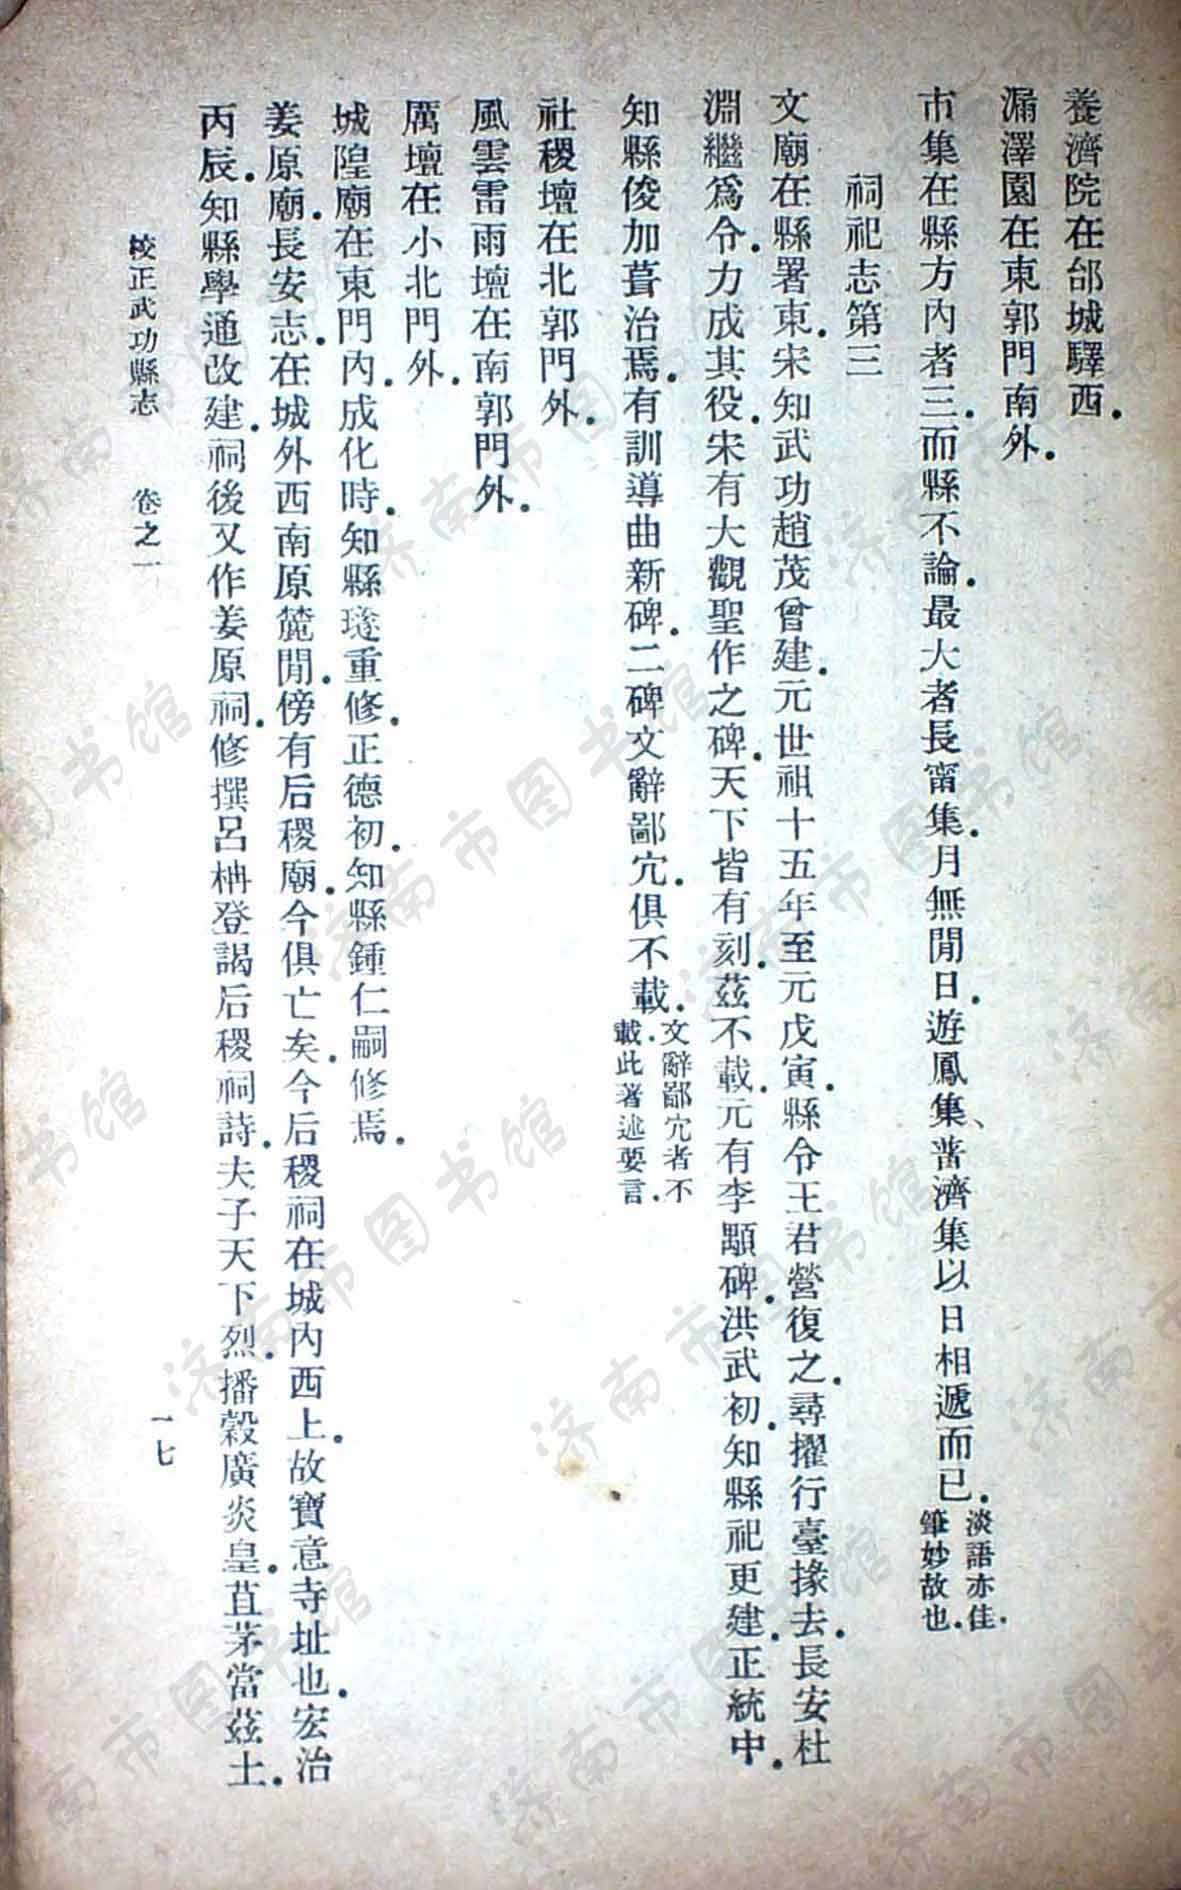 養濟院在邰城驛西.
漏澤園在東郭門南外.
市集在縣方內者三.而縣不論.最大者長甯集.月無閒日.遊鳳集、普濟集以日相遞而已.淡語亦佳.筆妙故也.
祠祀志第三
文廟在縣署東.宋知武功趙茂曾建.元世祖十五年至元戊寅.縣令王君營復之.尋擢行臺掾去.長安杜
淵繼爲令.力成其役.宋有大觀聖作之碑.天下皆有刻.茲不載.元有李顒碑.洪武初.知縣祀更建.正統中.
知縣俊加葺治焉.有訓導曲新碑.二碑文辭鄙冗.俱不載.文辭鄙冗者不載.此著述要言.
社稷壇在北郭門外.
風雲雷雨壇在南郭門外.
厲壇在小北門外.
城隍廟在東門內.成化時.知縣璲重修.正德初.知縣鍾仁嗣修焉.
姜原廟.長安志.在城外西南原麓閒.傍有后稷廟.今俱亡矣.今后稷祠在城內西上.故寶意寺址也.宏治
丙辰.知縣學通改建.祠後又作姜原祠.修撰呂柟登謁后稷祠詩.夫子天下烈.播穀廣炎皇.苴茅當茲土.
校正武功縣志 卷之一
一七
济南市图书馆